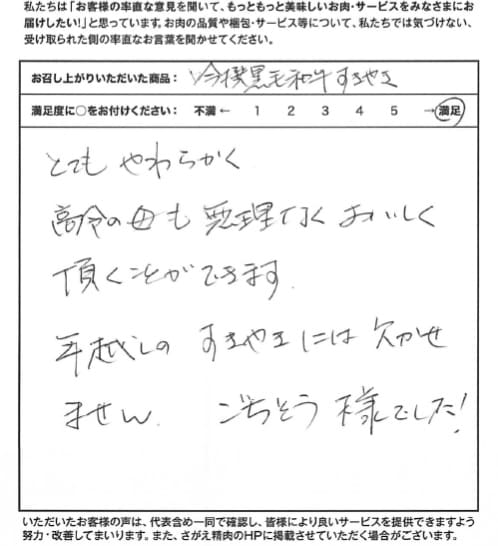 私たちは「お客様の率直な意見を聞いて、もっともっと美味しいお肉・サービスをみなさまにお
届けしたい!」と思っています。お肉の品質や梱包・サービス等について、私たちでは気づけない、
受け取られた側の率直なお言葉を聞かせてください。
お召し上がりいただいた商品： 黒毛和牛すきやき
満足度に○をお付けください： 不満 ← 1 2 3 4 5 → 満足
とても やわらかく
高令の母も 無理なく おいしく
頂くことができます.
年越しの すきやきには 欠かせ
ません. ごちそう様でした!
いただいたお客様の声は、代表含め一同で確認し、皆様により良いサービスを提供できますよう
努力・改善してまいります。また、さがえ精肉のHPに掲載させていただく場合がございます。